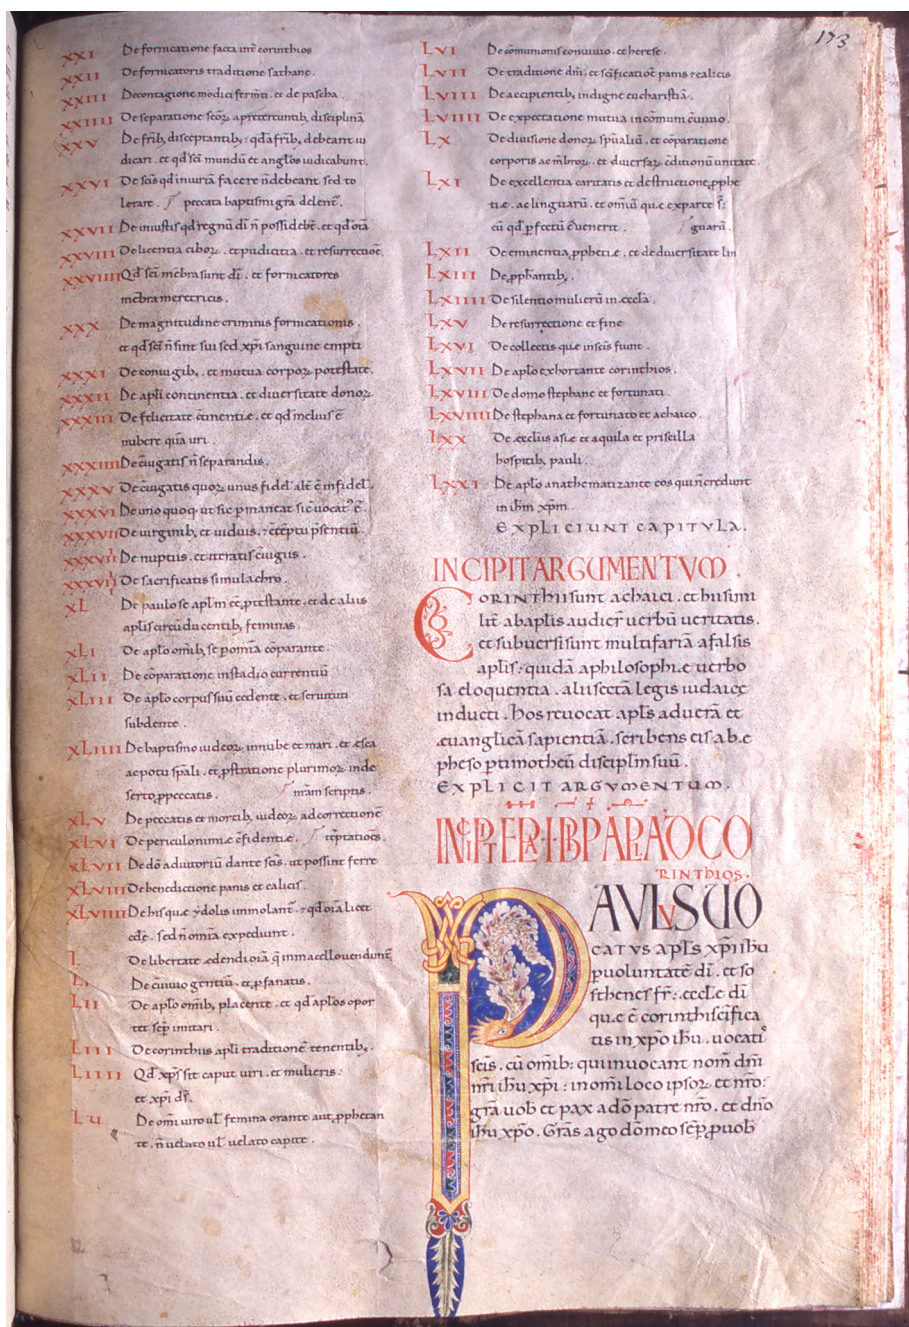 173
XXI De fornicatione facta int̄ corinthios
XXII De fornicatoris traditione sathane.
XXIII De contagione modici ferm̄ti et de pascha.
XXIIII De separatione sc̄oꝝ a pretereuntib; disciplinā
XXV De frīb; disceptantib; qđ a frīb; debeant iu
dicari. et qđ sc̄i mundū et anglos iudicabunt.
XXVI De sc̄is qđ iniuriā facere n̄ debeant sed to
lerare. peccata baptismi grā delent̄.
XXVII De iniustis qđ regnū dī n̄ possidebt̄. et qđ oīa
XXVIII De licentia ciboꝝ. et pudicitia. et resurrectiōe.
XXVIIII Qđ sc̄i mēbra sunt dī. et fornicatores
mēbra meretricis.
XXX De magnitudine criminis fornicationis.
et qđ sc̄i n̄ sint sui sed xp̄i sanguine empti
XXXI De coniugib;. et mutua corpoꝝ potestate.
XXXII De apłi continentia. et diuersitate donoꝝ
XXXIII De felicitate c̄tinentiæ. et qđ meliuſ ē
nubere quā uri.
XXXIIII De c̄iugatis n̄ separandis.
XXXV De c̄iugatis quoꝝ unus fidel' alt̄ ē infidel'.
XXXVI De uno quoq; ut sic ꝑmaneat sic̄ uocat' ē.
XXXVII De uirginib; et uiduis.
XXXVIII De nuptiis. et iteratis c̄iugiis.
XXXVIIII De sacrificatis simulachro.
XL De paulo se apłm eē ꝓtestante. et de aliis
apłis circū ducentib; feminas.
XLI De apło omīb; se ꝑ omīa cōparante.
XLII De cōparatione in stadio currentiū
XLIII De apło corpus suū cedente. et seruituti
subdente.
XLIIII De baptismo iudeoꝝ in nube et mari. et esca
ac potu sp̄ali. et ꝓstratione plurimoꝝ in de
serto ꝓ peccatis. n̄rām scriptis.
XLV De peccatis et mortib; iudeoꝝ ad correctionē
XLVI De periculo nimiæ c̄fidentiæ. tēptatioēs.
XLVII De dō adiutoriū dante sc̄is. ut possint ferre
XLVIII De benedictione panis et calicis.
XLVIIII De his quæ ydolis immolant̄. et qđ oīa licet
edē. sed n̄ omīa expediunt.
L De libertate ædendi oīā q̄ in macello uendunt̄.
LI De c̄uiuio gentiū. et ꝓfanatis.
LII De apło omīb; placente. et qđ apłos opor
tet sep̄ imitari.
LIII De corinthiis apłi traditionē tenentib;.
LIIII Qđ xp̄s sit caput uiri. et mulieris.
et xp̄i dī.
LV De omī uiro uł femina orante aut ꝓphetan
te. n̄ uelato uł uelato capite.
LVI De cōmunionis conuiuio. et herese.
LVII De traditione dn̄i. et sc̄ificatiōe panis et calicis
LVIII De accipientib; indigne eucharistiā.
LVIIII De expectatione mutua in cōmuni c̄uiuio.
LX De diuisione donoꝝ sp̄ualiū. et cōparatione
corporis ac mēbroꝝ. et diuersaꝝ c̄ditionū unitate.
LXI De excellentia caritatis et destructione ꝓphe
tiæ. ac linguarū. et omiū quæ ex parte s̄:
cū qđ ꝑfectū ē uenerit. guarū.
LXII De eminentia ꝓphetiæ. et de diuersitate lin
LXIII De ꝓphantib;.
LXIIII De silentio mulierū in æccla.
LXV De resurrectione et fine
LXVI De collectis quæ in sc̄is fiunt.
LXVII De apło exhortante corinthios.
LXVIII De domo stephane et fortunati.
LXVIIII De stephana et fortunato et achaico.
LXX De æccłiis asiæ et aquila et priscilla
hospitib; pauli.
LXXI De apło anathematizante eos qui n̄ credunt
in ihm̄ xp̄m.
EXPLICIUNT CAPITVLA.
INCIPIT ARGUMENTVM.
CORINTHII sunt achaici. et hi simi
lit̄ ab apłis audier̄ uerbū ueritatis.
et subuersi sunt multifariā a falsis
apłis. quidā a philosophiæ uerbo
sa eloquentia. alii secta legis iudaicę
inducti. hos reuocat apłs ad uerā et
æuanglicā sapientiā. scribens eis ab æ
pheso ꝑ timotheū discipłm suū.
EXPLICIT ARGVMENTVM.
INCIPIT EPŁA I PBI PAVLI AD CO
RINTHIOS.
PAVLVS UO
CATVS apłs xp̄i ihū
ꝑ uoluntatē dī. et so
sthenes fr̄: eccłe dī
quæ ē corinthi sc̄ifica
tis in xp̄o ihū. uocatis
sc̄is. cū omīb: qui inuocant nom̄ dn̄i
nr̄i ihū xp̄i: in omī loco ipsoꝝ et nr̄o:
grā uob et pax a dō patre nr̄o. et dn̄o
ihū xp̄o. Grās ago dō meo sēp̄ ꝓ uob